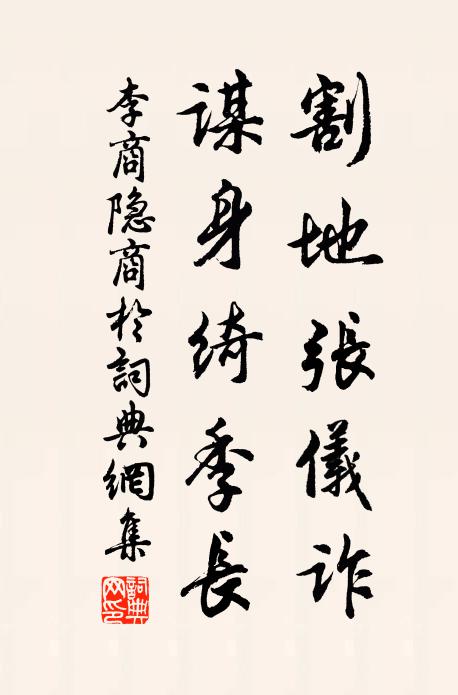 割地張儀詐
謀身綺季長
李商隐商於詞典網集
詞典網印